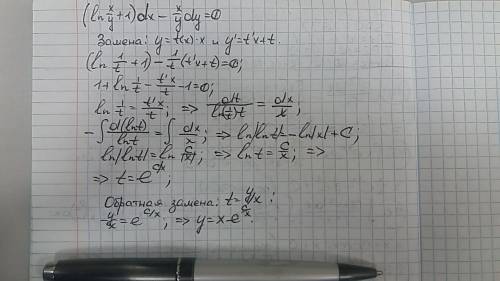 (ln x/y + 1)dx − x/y dy = 0
Замена: y = t(x)·x и y' = t'x + t.
(ln 1/t + 1) − 1/t (t'x + t) = 0;
1 + ln 1/t − t'x/t − 1 = 0;
ln 1/t = t'x/t; ⇒ dt/(ln(1/t)t) = dx/x;
−∫ d(ln t)/ln t = ∫ dx/x; ⇒ ln|ln t| = −ln|x| + C;
ln|ln t| = ln |C/x|; ⇒ ln t = C/x; ⇒
⇒ t = e^(C/x);
Обратная замена: t = y/x :
y/x = e^(C/x); ⇒ y = x·e^(C/x).